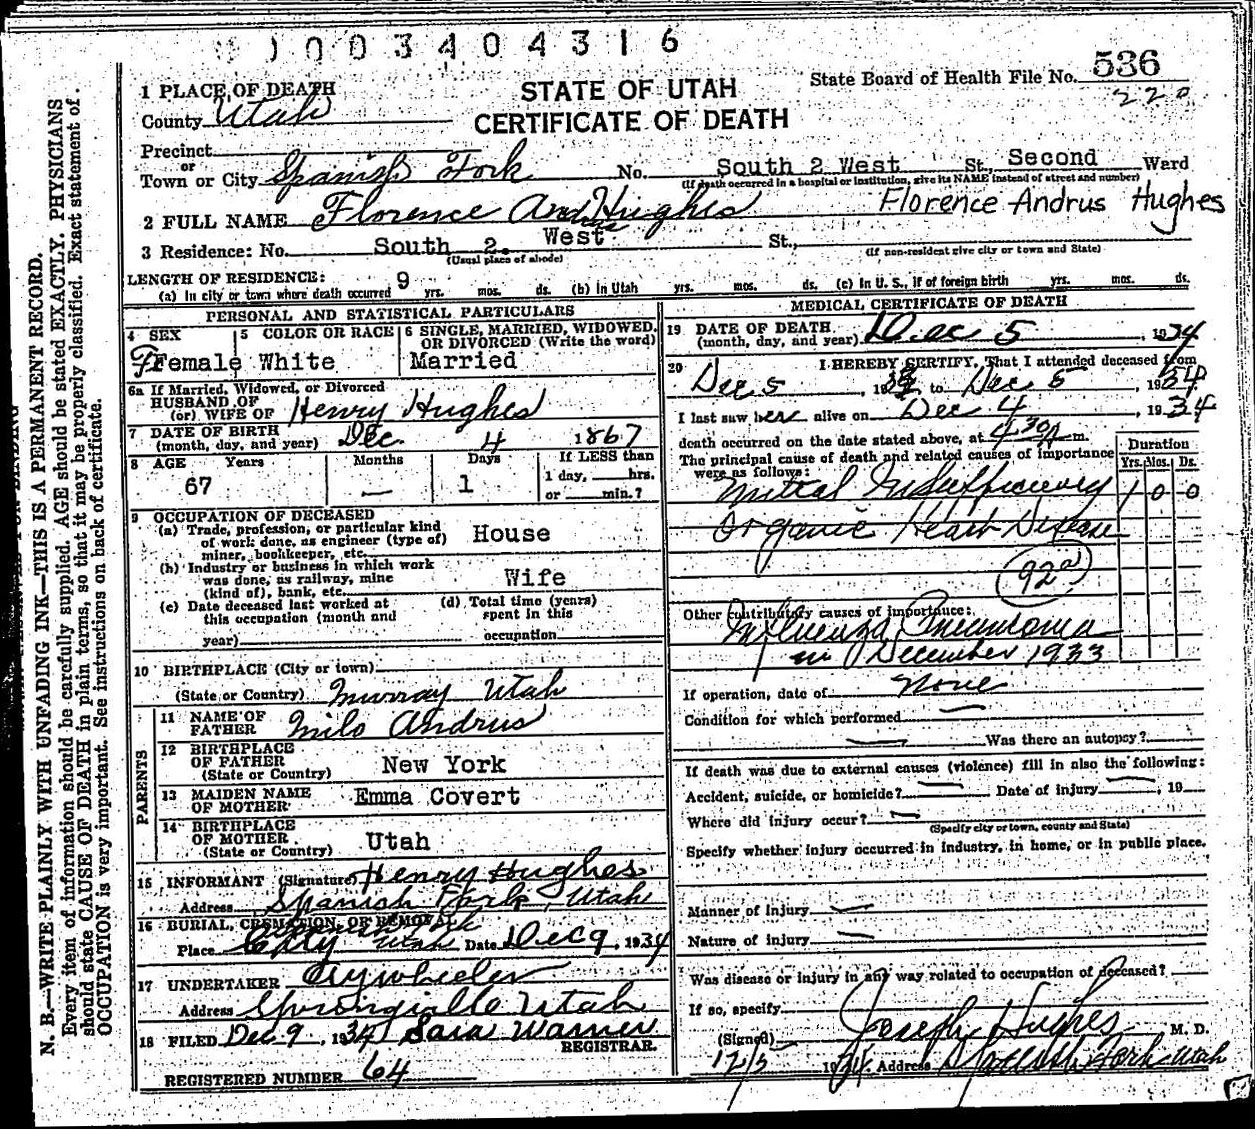 1003404316
State Board of Health File No. 536
220
1 PLACE OF DEATH
STATE OF UTAH
County Utah
CERTIFICATE OF DEATH
Precinct
or
Town or City Spanish Fork No. South 2 West St., Second Ward
(If death occurred in a hospital or institution, give its NAME instead of street and number)
2 FULL NAME Florence Andrus Hughes Florence Andrus Hughes
3 Residence: No. South 2. West St.,
(Usual place of abode) (If non-resident give city or town and State)
LENGTH OF RESIDENCE:
(a) In city or town where death occurred 9 yrs. mos. ds. (b) In Utah yrs. mos. ds. (c) In U. S., if of foreign birth yrs. mos. ds.
PERSONAL AND STATISTICAL PARTICULARS
4 SEX Female
5 COLOR OR RACE White
6 SINGLE, MARRIED, WIDOWED, OR DIVORCED (Write the word) Married
6a If Married, Widowed, or Divorced
HUSBAND OF
(or) WIFE OF Henry Hughes
7 DATE OF BIRTH
(month, day, and year) Dec. 4 1867
8 AGE Years Months Days If LESS than
67 — 1 1 day, hrs.
or min.?
9 OCCUPATION OF DECEASED
(a) Trade, profession, or particular kind
of work done, as engineer (type of)
miner, bookkeeper, etc. House
(b) Industry or business in which work
was done, as railway, mine
(kind of), bank, etc. Wife
(c) Date deceased last worked at
this occupation (month and
year)
(d) Total time (years)
spent in this
occupation
10 BIRTHPLACE (City or town)
(State or Country) Murray Utah
PARENTS
11 NAME OF
FATHER Milo Andrus
12 BIRTHPLACE
OF FATHER
(State or Country) New York
13 MAIDEN NAME
OF MOTHER Emma Covert
14 BIRTHPLACE
OF MOTHER
(State or Country) Utah
15 INFORMANT (Signature) Henry Hughes
Address Spanish Fork, Utah
16 BURIAL, CREMATION, OR REMOVAL
Place City Utah Date Dec 9, 1934
17 UNDERTAKER
Address Springville Utah
18 FILED Dec. 9, 1934 Sara Warner
REGISTRAR.
REGISTERED NUMBER 64
MEDICAL CERTIFICATE OF DEATH
19 DATE OF DEATH
(month, day, and year) Dec 5, 1934
20 I HEREBY CERTIFY, That I attended deceased from
Dec 5, 1934 to Dec 5, 1934
I last saw her alive on Dec 4, 1934
death occurred on the date stated above, at 4 30 A m.
The principal cause of death and related causes of importance
were as follows:
Duration
Yrs. Mos. Ds.
Mitral Insufficiency 1 0 0
Organic Heart Disease
92a
Other contributary causes of importance:
Influenza Pneumonia
in December 1933
If operation, date of None
Condition for which performed —
— Was there an autopsy?
If death was due to external causes (violence) fill in also the following:
Accident, suicide, or homicide? — Date of injury —, 19
Where did injury occur? —
(Specify city or town, county and State)
Specify whether injury occurred in industry, in home, or in public place.
Manner of injury —
Nature of injury —
Was disease or injury in any way related to occupation of deceased?
If so, specify
(Signed) Joseph Hughes M. D.
12/5 1934 Address Spanish Fork Utah
N. B.—WRITE PLAINLY WITH UNFADING INK—THIS IS A PERMANENT RECORD.
Every item of information should be carefully supplied. AGE should be stated EXACTLY. PHYSICIANS
should state CAUSE OF DEATH in plain terms, so that it may be properly classified. Exact statement of
OCCUPATION is very important. See instructions on back of certificate.